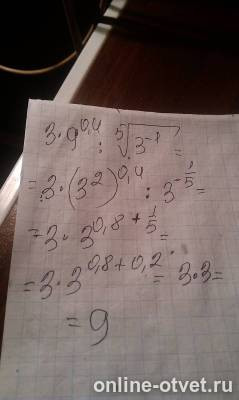 3·9^0,4 : ⁵√3^-1 =
= 3·(3^2)^0,4 : 3^-1/5 =
= 3·3^0,8+1/5 =
= 3·3^0,8+0,2 = 3·3 =
= 9
online-otvet.ru